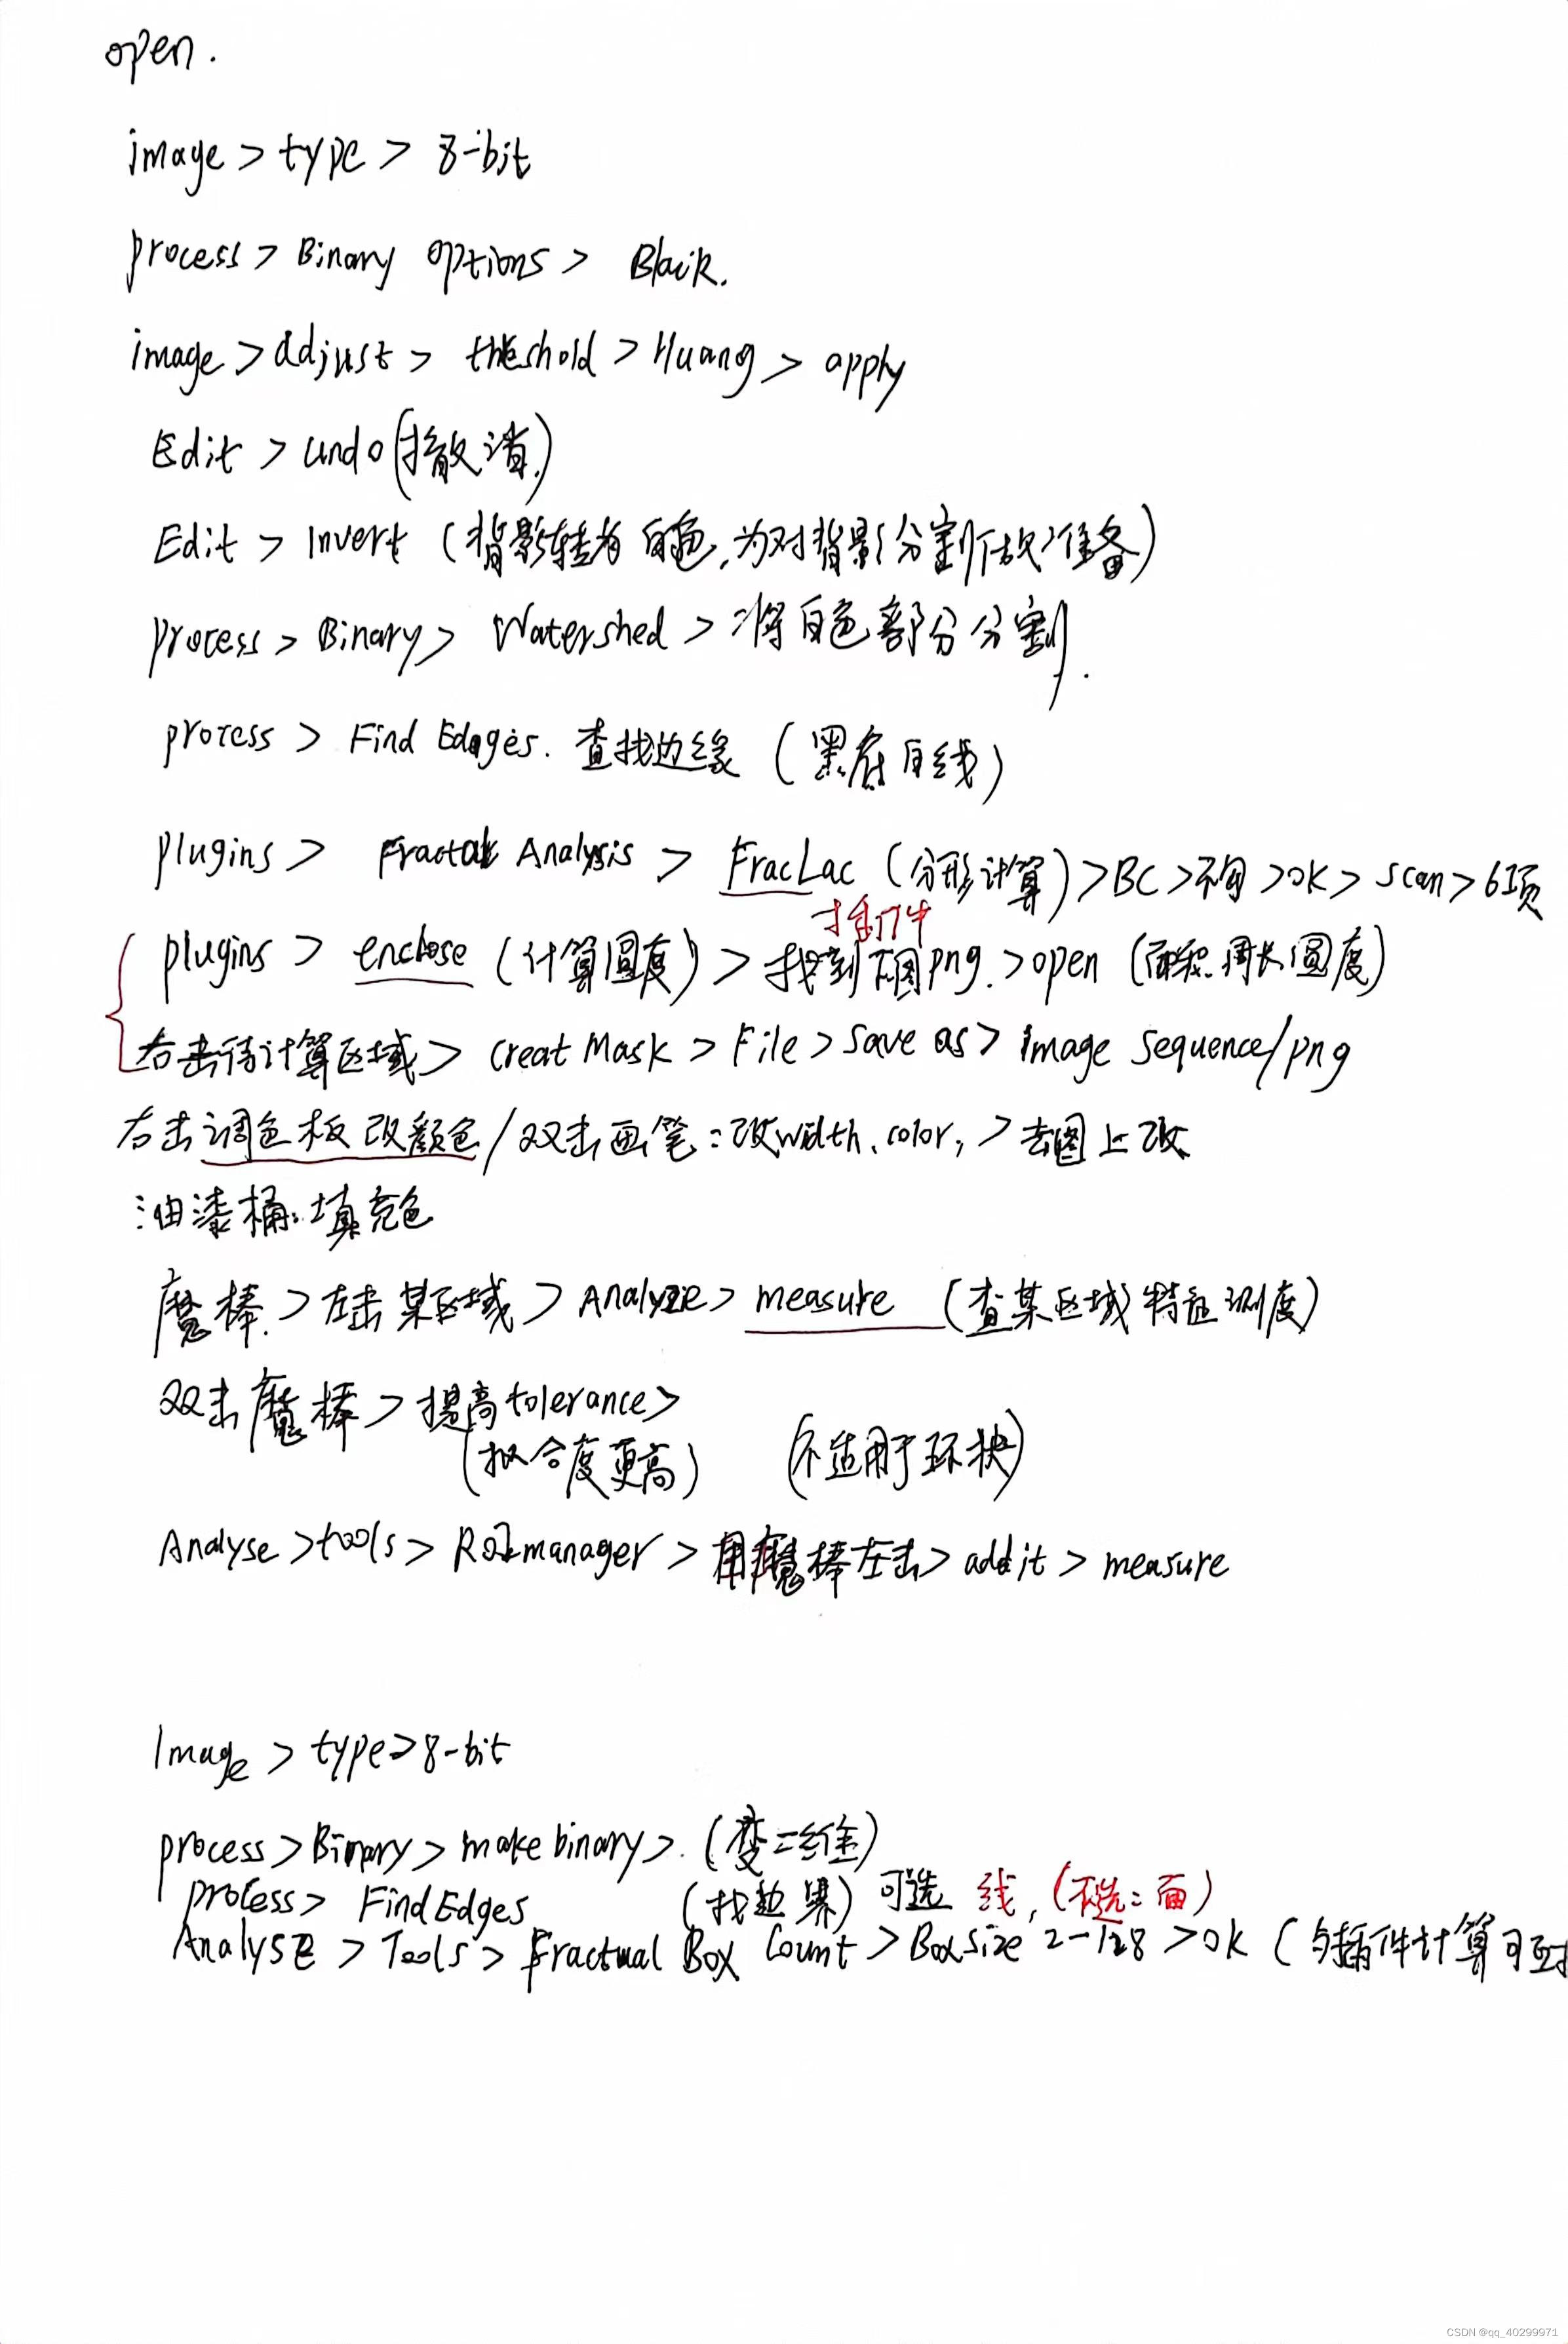 open.
image > type > 8-bit
process > Binary options > Black.
image > adjust > threshold > Huang > apply
Edit > undo (撤消)
Edit > Invert (背影转为白色,为对背影分割做准备)
process > Binary > Watershed > 将白色部分分割.
process > Find Edages. 查找边缘 (黑底白线)
plugins > Fractal Analysis > FracLac (分形计算) > BC > 不勾 > OK > scan > 6项
插件
plugins > enclose (计算圆度) > 找到下图png. > open (面积周长圆度)
右击待计算区域 > creat Mask > File > Save as > Image Sequence/png
右击调色板改颜色/双击画笔:改width、color, > 去图上改
油漆桶:填充色
魔棒 > 左击某区域 > Analyzie > measure (查某区域特征测度)
双击魔棒 > 提高tolerance >
(拟合度更高) (不适用于环状)
Analyse > tools > ROI manager > 用魔棒左击 > add it > measure
Image > type > 8-bit
process > Binary > make binary > (变二维)
process > Find Edges (找边界) 可选 线, (不选:面)
Analyse > Tools > Fractual Box Count > Box Size 2-128 > OK (与插件计算可
CSDN @qq_40299971